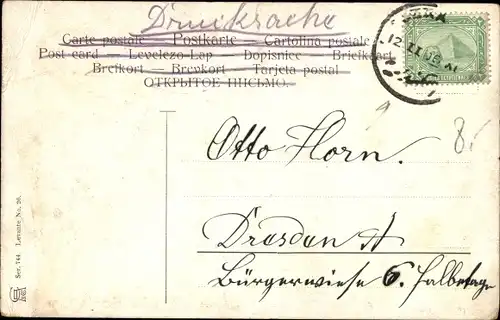 Drucksache
Carte postale Postkarte Cartolina postale
Post card Levelezo-Lap Dopisnice Briefkaart
Brefkort Brevkort Tarjeta postal
ОТКРЫТОЕ ПИСЬМО.
12 II 05
8.-
Otto Horn.
Dresden A
Bürgerwiese 6. Halbetage
Ser. 744 Levante No. 26.